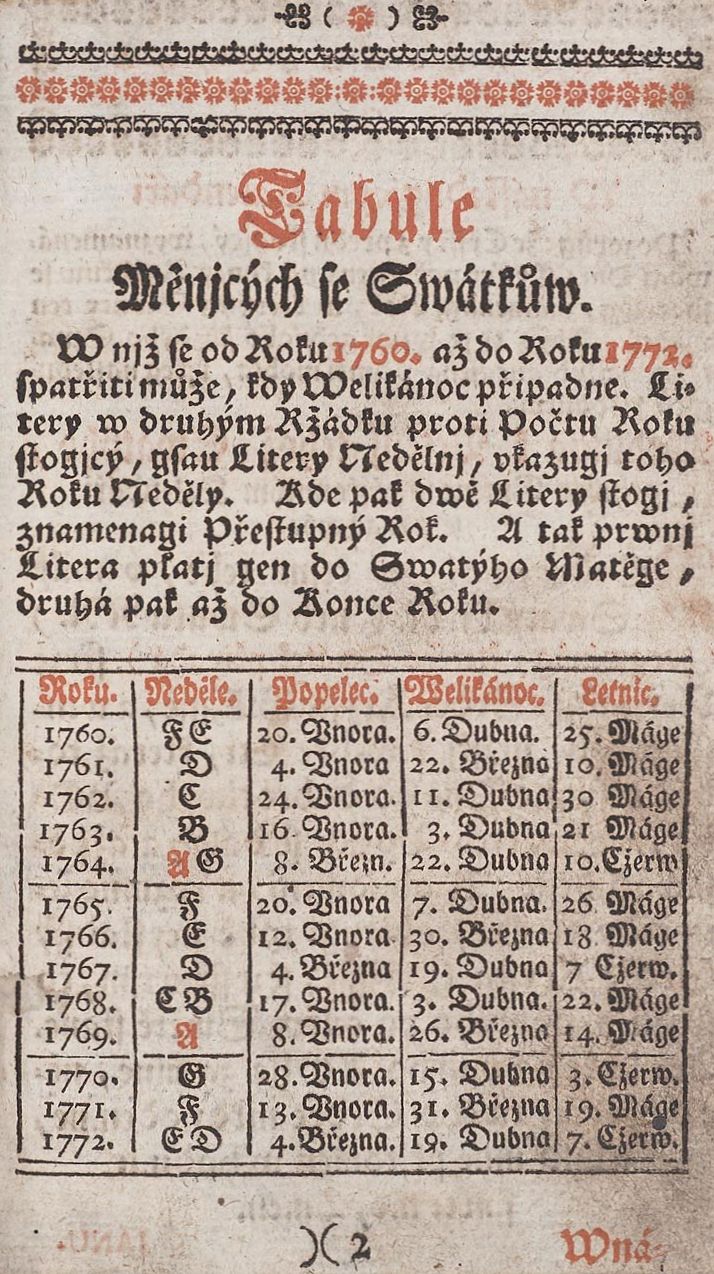 ( )
Tabule
Měnjcých se Swátkůw.
W njž se od Roku 1760. až do Roku 1772.
spatřiti může, kdy Welikánoc připadne. Li-
tery w druhým Ržádku proti Počtu Roku
stogjcý, gsau Litery Nedělnj, vkazugj toho
Roku Neděly. Kde pak dwě Litery stogj,
znamenagi Přestupný Rok. A tak prwnj
Litera platj gen do Swatýho Matěge,
druhá pak až do Konce Roku.
Roku. Neděle. Popelec. Welikánoc. Letnic.
1760. F E 20. Vnora. 6. Dubna. 25. Máge
1761. D 4. Vnora 22. Března 10. Máge
1762. C 24. Vnora. 11. Dubna 30 Máge
1763. B 16. Vnora. 3. Dubna 21 Máge
1764. A G 8. Březn. 22. Dubna 10. Cžerw
1765. F 20. Vnora 7. Dubna. 26 Máge
1766. E 12. Vnora. 30. Března 18 Máge
1767. D 4. Března 19. Dubna 7 Cžerw.
1768. C B 17. Vnora. 3. Dubna. 22. Máge
1769. A 8. Vnora. 26. Března 14. Máge
1770. G 28. Vnora. 15. Dubna 3. Cžerw.
1771. F 13. Vnora. 31. Března 19. Máge
1772. E D 4. Března. 19. Dubna 7. Cžerw.
)( 2 Wná-